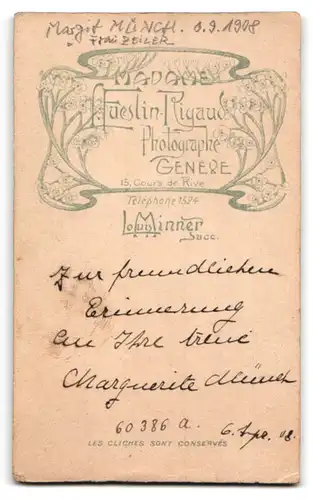 Margit MÜNCH. 0.9.1908
Frau ZEILER
MADAME
Gueslin-Rigaud
Photographe
GENÈVE
15, Cours de Rive
Téléphone 1524
Louis Minner
Succ.
Zur freundlichen
Erinnerung
an Ihre treue
Marguerite Münch
60386 a. 6. Apr. 08.
LES CLICHÉS SONT CONSERVÉS